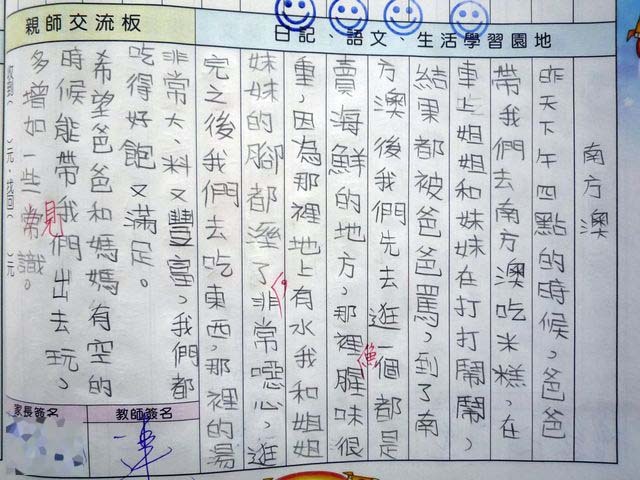 日記、語文、生活學習園地
南方澳
昨天下午四點的時候，爸爸
帶我們去南方澳吃米糕，在
車上姐姐和妹妹在打打鬧鬧，
結果都被爸爸罵，到了南
方澳後我們先去逛一個都是
賣海鮮的地方，那裡魚腥味很
重，因為那裡地上有水我和姐姐
妹妹的腳都溼了，非常噁心，逛
完之後我們去吃東西，那裡的湯
親師交流板
非常大、料又豐富，我們都
吃得好飽又滿足。
希望爸爸和媽媽有空的
時候能帶我們出去玩、
多增加一些常見識。
教師簽名
家長簽名